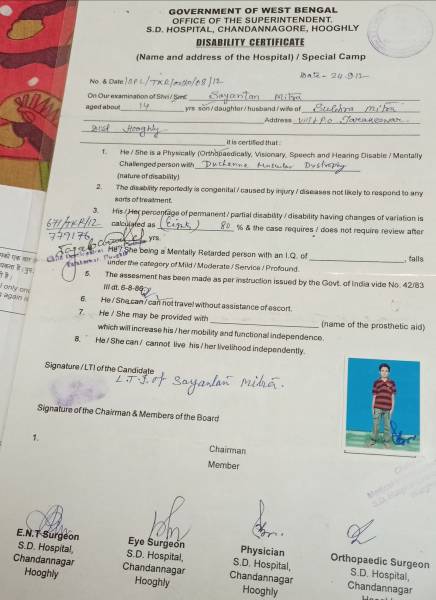 GOVERNMENT OF WEST BENGAL
OFFICE OF THE SUPERINTENDENT.
S.D. HOSPITAL, CHANDANNAGORE, HOOGHLY
DISABILITY CERTIFICATE
(Name and address of the Hospital) / Special Camp
No. & Date
Date - 24.9.12
On Our examination of Shri / Smt Sayantan Mitra
aged about 14 yrs son / daughter / husband / wife of Mitra
Address Vill + P.O Tarakeswar
Dist Hooghly it is certified that :
1. He / She is a Physically (Orthopaedically, Visionary, Speech and Hearing Disable / Mentally
Challenged person with Duchenne Muscular Dystrophy
(nature of disability)
2. The disability reportedly is congenital / caused by injury / diseases not likely to respond to any
sorts of treatment.
3. His / Her percentage of permanent / partial disability / disability having changes of variation is
calculated as (Eighty) 80 % & the case requires / does not require review after
yrs.
779176
He / She being a Mentally Retarded person with an I.Q. of , falls
under the category of Mild / Moderate / Service / Profound.
5. The assesment has been made as per instruction issued by the Govt. of India vide No. 42/83
III dt. 6-8-86
6. He / She can / can not travel without assistance of escort.
7. He / She may be provided with (name of the prosthetic aid)
which will increase his / her mobility and functional independence.
8. He / She can / cannot live his / her livelihood independently.
Signature / LTI of the Candidate
L.T.I. of Sayantan Mitra.
Signature of the Chairman & Members of the Board
1.
Chairman
Member
E.N.T Surgeon
S.D. Hospital,
Chandannagar
Hooghly
Eye Surgeon
S.D. Hospital,
Chandannagar
Hooghly
Physician
S.D. Hospital,
Chandannagar
Hooghly
Orthopaedic Surgeon
S.D. Hospital,
Chandannagar